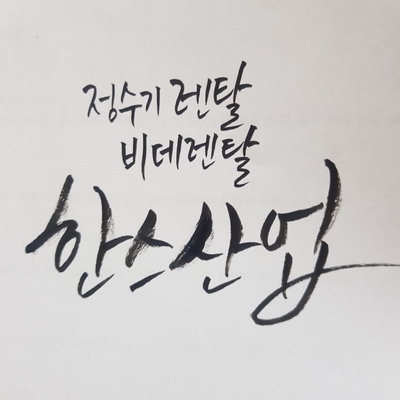 정수기 렌탈
비데렌탈
한스산업